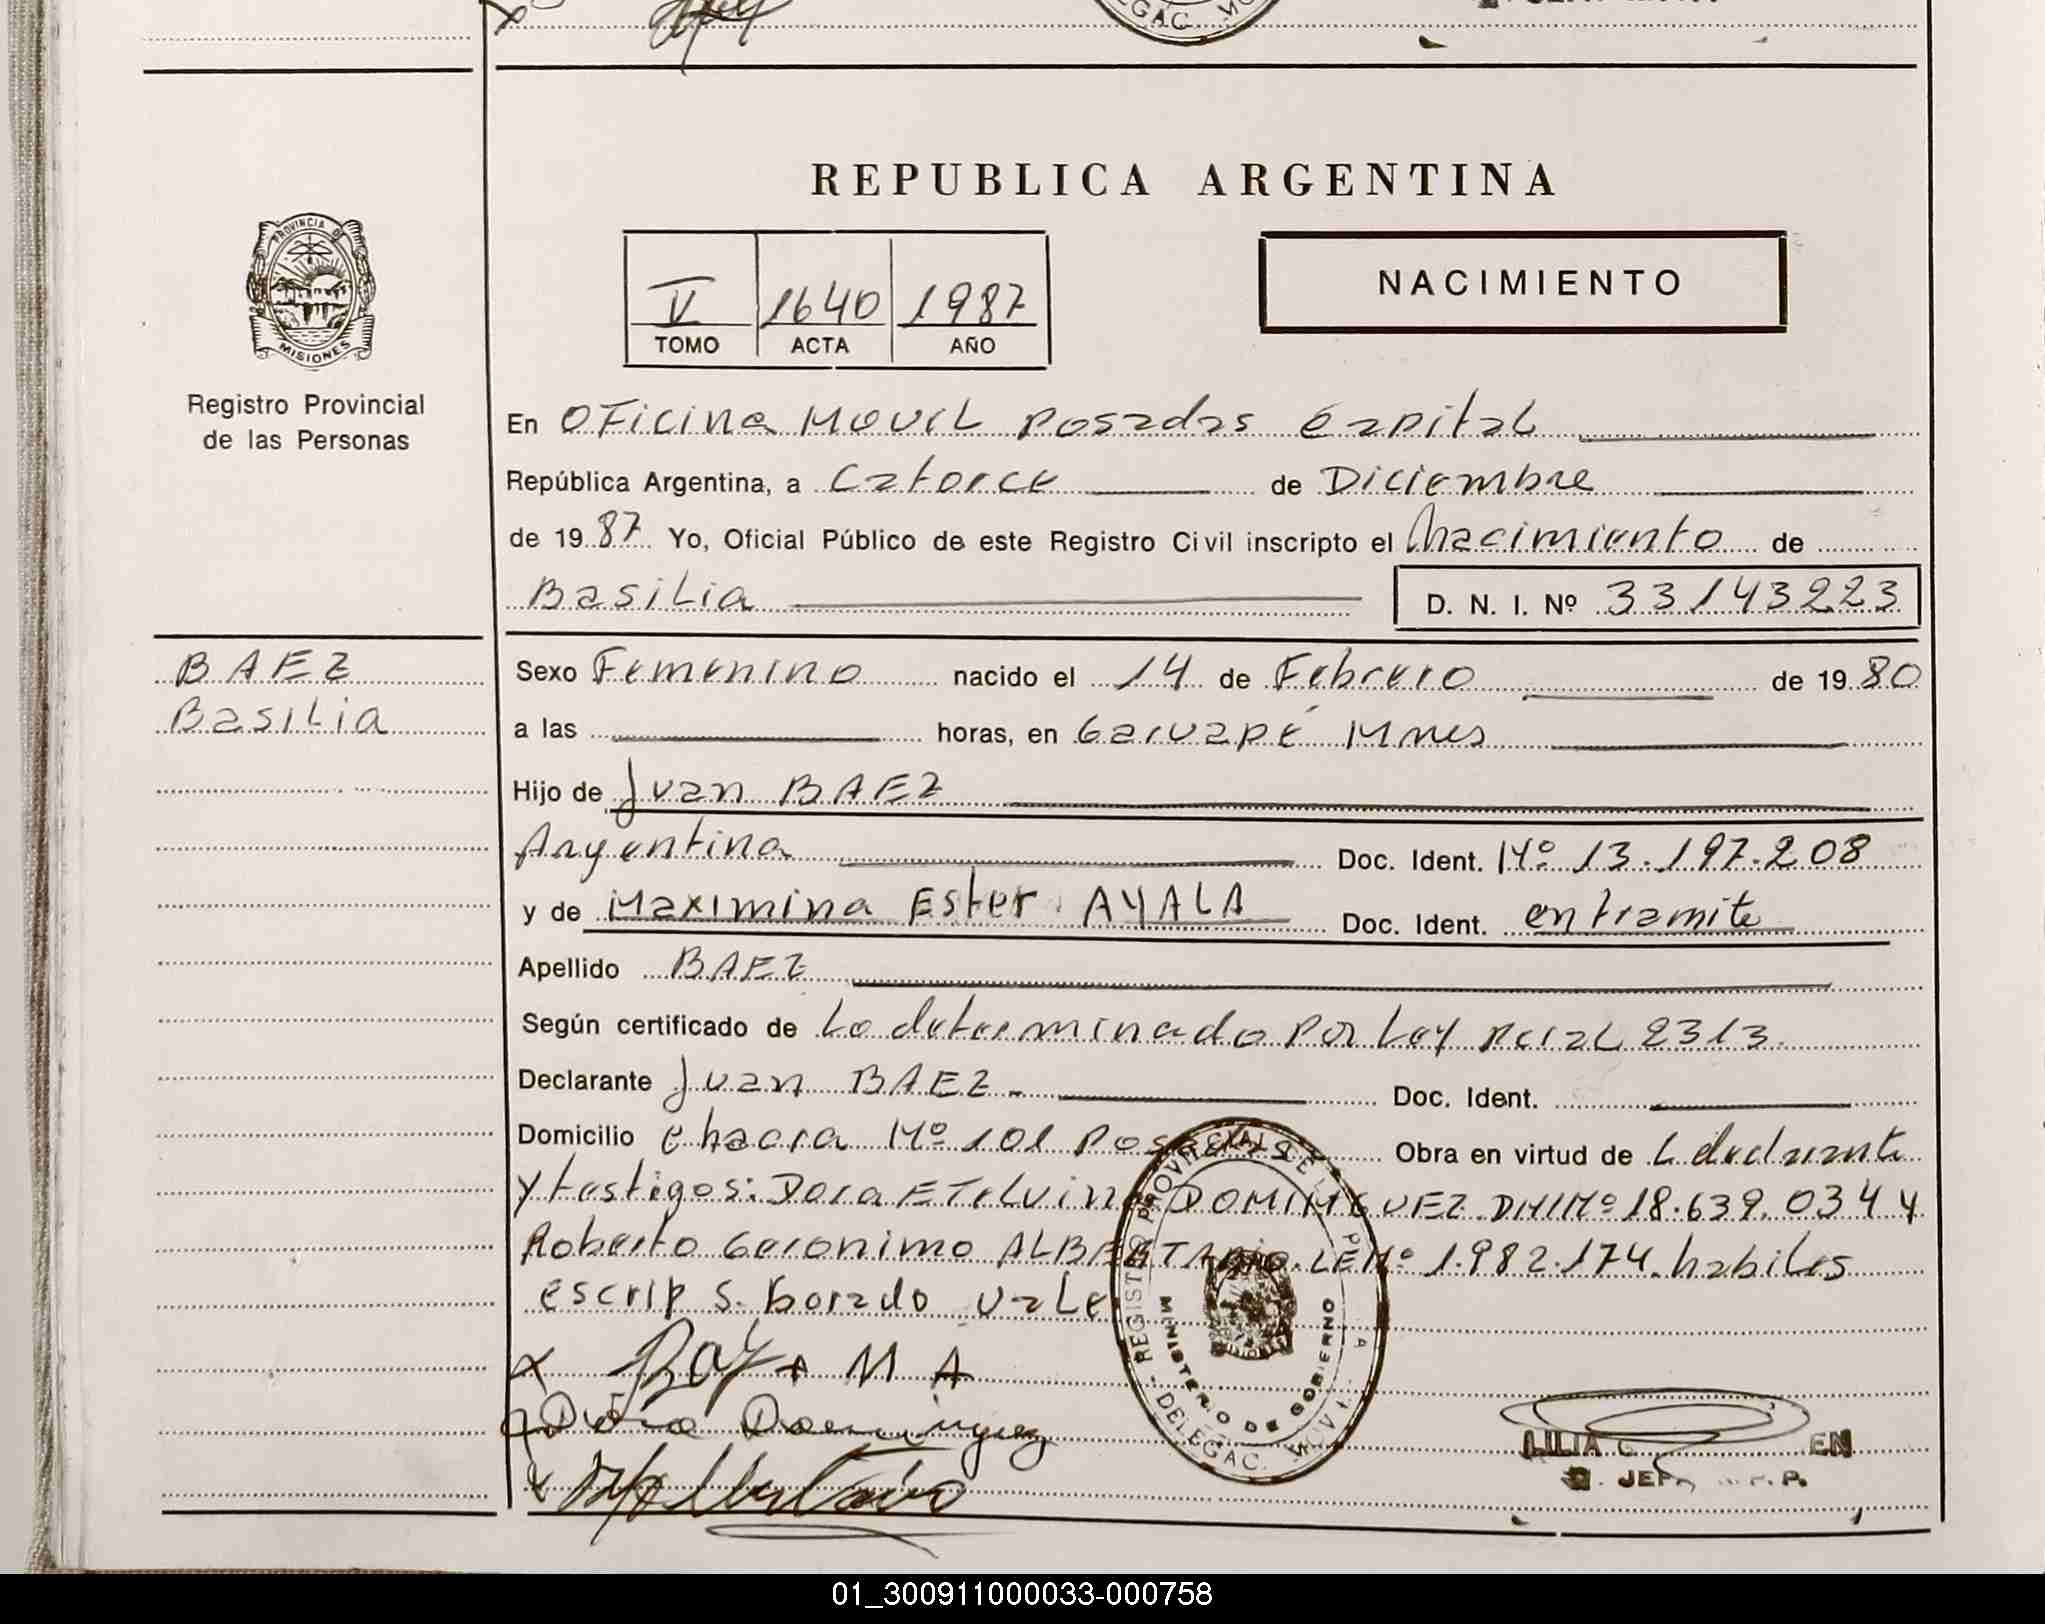 REPUBLICA ARGENTINA
PROVINCIA DE
MISIONES
Registro Provincial
de las Personas
V 1640 1987
TOMO ACTA AÑO
NACIMIENTO
En Oficina Movil Posadas Capital
República Argentina, a Catorce de Diciembre
de 1987 Yo, Oficial Público de este Registro Civil inscripto el Nacimiento de
Basilia D. N. I. Nº 33143223
BAEZ
Basilia
Sexo Femenino nacido el 14 de Febrero de 1980
a las horas, en Garuapé Mnes
Hijo de Juan BAEZ
Argentina Doc. Ident. Nº 13.197.208
y de Maximina Ester AYALA Doc. Ident. en tramite
Apellido BAEZ
Según certificado de Lo determinado Por Ley Pcial 2313.
Declarante Juan BAEZ. Doc. Ident.
Domicilio Chacra Nº 101 Posadas Obra en virtud de L declarante
y testigos: Dora Etelvina DOMINGUEZ DNI Nº 18.639.034 y
Roberto Geronimo ALBERTARIO. LE Nº 1.982.174. habiles
escrip s. borado vale
x + M A
Dora Dominguez
x
REGISTRO PROVINCIAL DE
MINISTERIO DE GOBIERNO
DELEGAC. MOVIL
LILIA
JEF
01_300911000033-000758